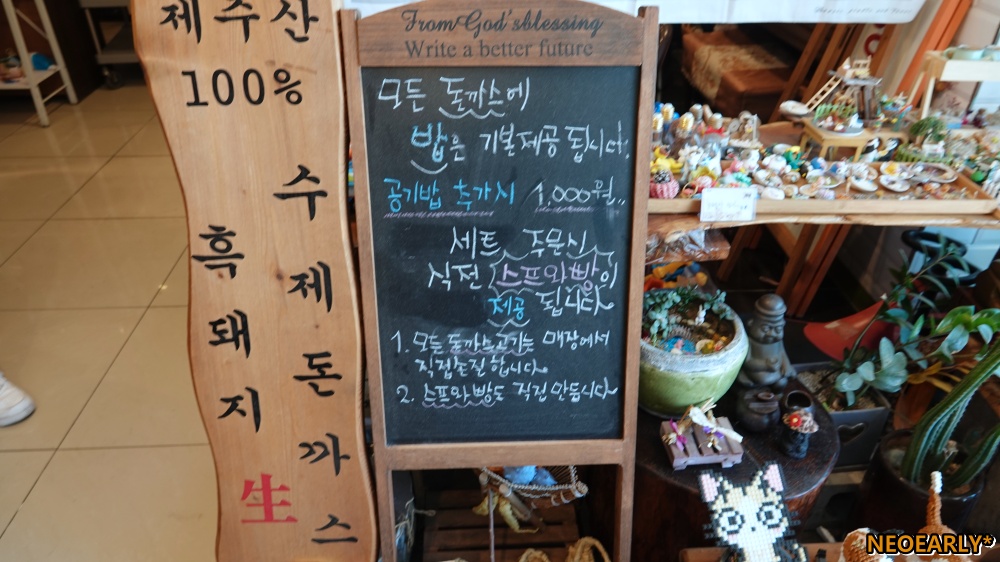 제주산
100%
수제돈까스
흑돼지
生
From God's blessing
Write a better future
모든 돈까스에
밥은 기본제공 됩니다.
공기밥 추가시 1,000원..
세트 주문시
식전 스프와 빵이
제공 됩니다
1. 모든 돈까스고기는 매장에서
직접손질 합니다.
2. 스프와 빵도 직접 만듭니다
NEOEARLY*